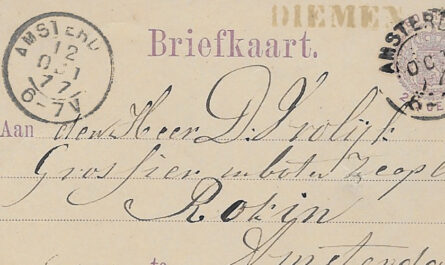 DIEMEN
AMSTERD
12
OCT
77
6-7V
Briefkaart.
AMSTERD
OC
Aan den Heer D. Vrolijk
Grossier in boter, zeep
Rokin
Amsterda
te